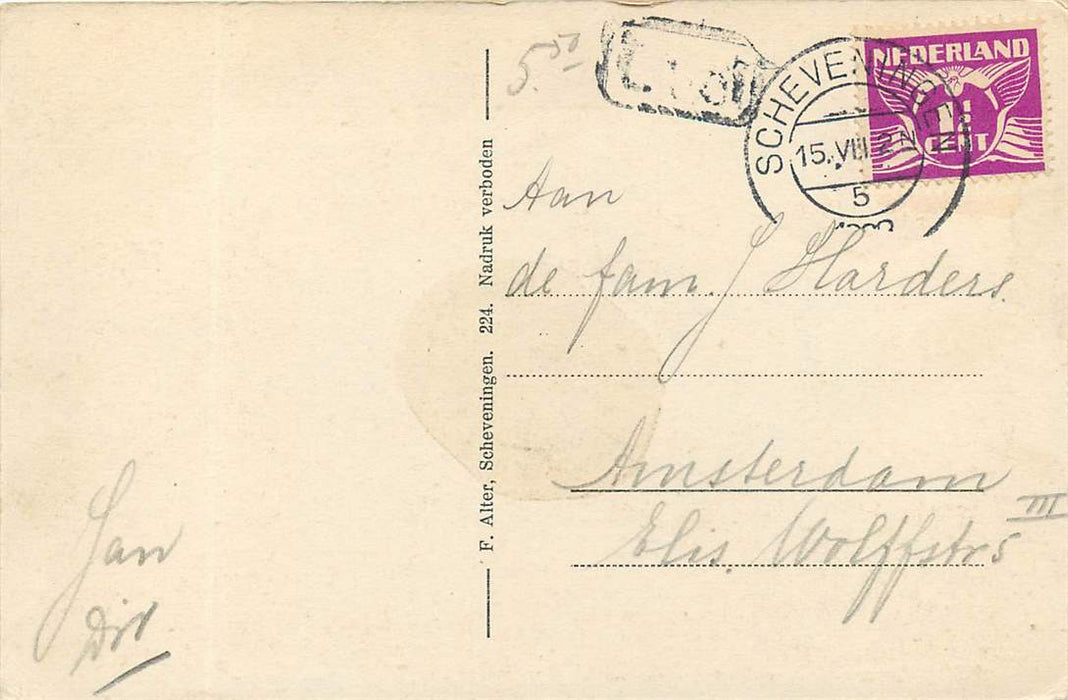 5.50
SCHEVENINGEN
15.VIII.2
5
NEDERLAND
1½
CENT
F. Alter, Scheveningen. 224. Nadruk verboden
Aan
de fam. J Harders.
Amsterdam
Elis. Wolffstr 5 III
Jan